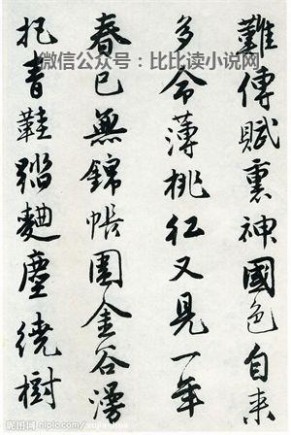 微信公众号：比比读小说网
難傳賦裏神國色自来
多命薄桃红又見一年
春已無錦帳圍金谷漫
把青鞋踏麯塵繞樹